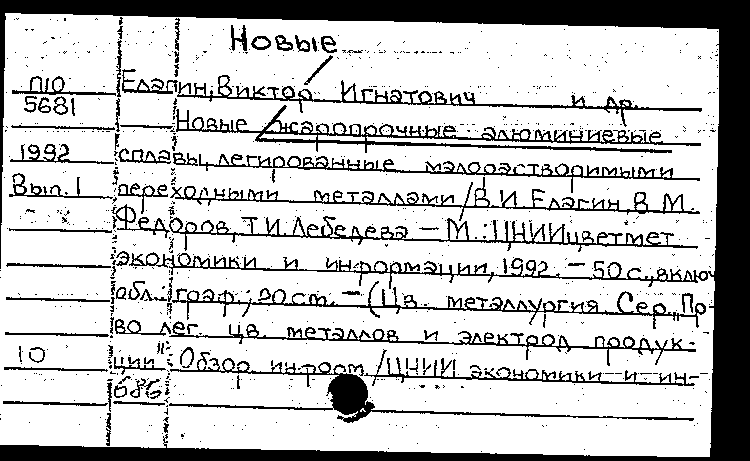 Новые
П10 Елагин, Виктор Игнатович и др.
5681
Новые жаропрочные алюминиевые
1992 сплавы, легированные малорастворимыми
Вып. 1 переходными металлами/В.И Елагин, В.М.
Федоров, Т.И. Лебедева — М.: ЦНИИцветмет
экономики и информации, 1992. — 50 с., включ
обл.: граф.; 20 см. — (Цв. металлургия. Сер. „Пр-
во лег. цв. металлов и электрод. продук-
10 ции": Обзор. информ. / ЦНИИ экономики и ин-
686